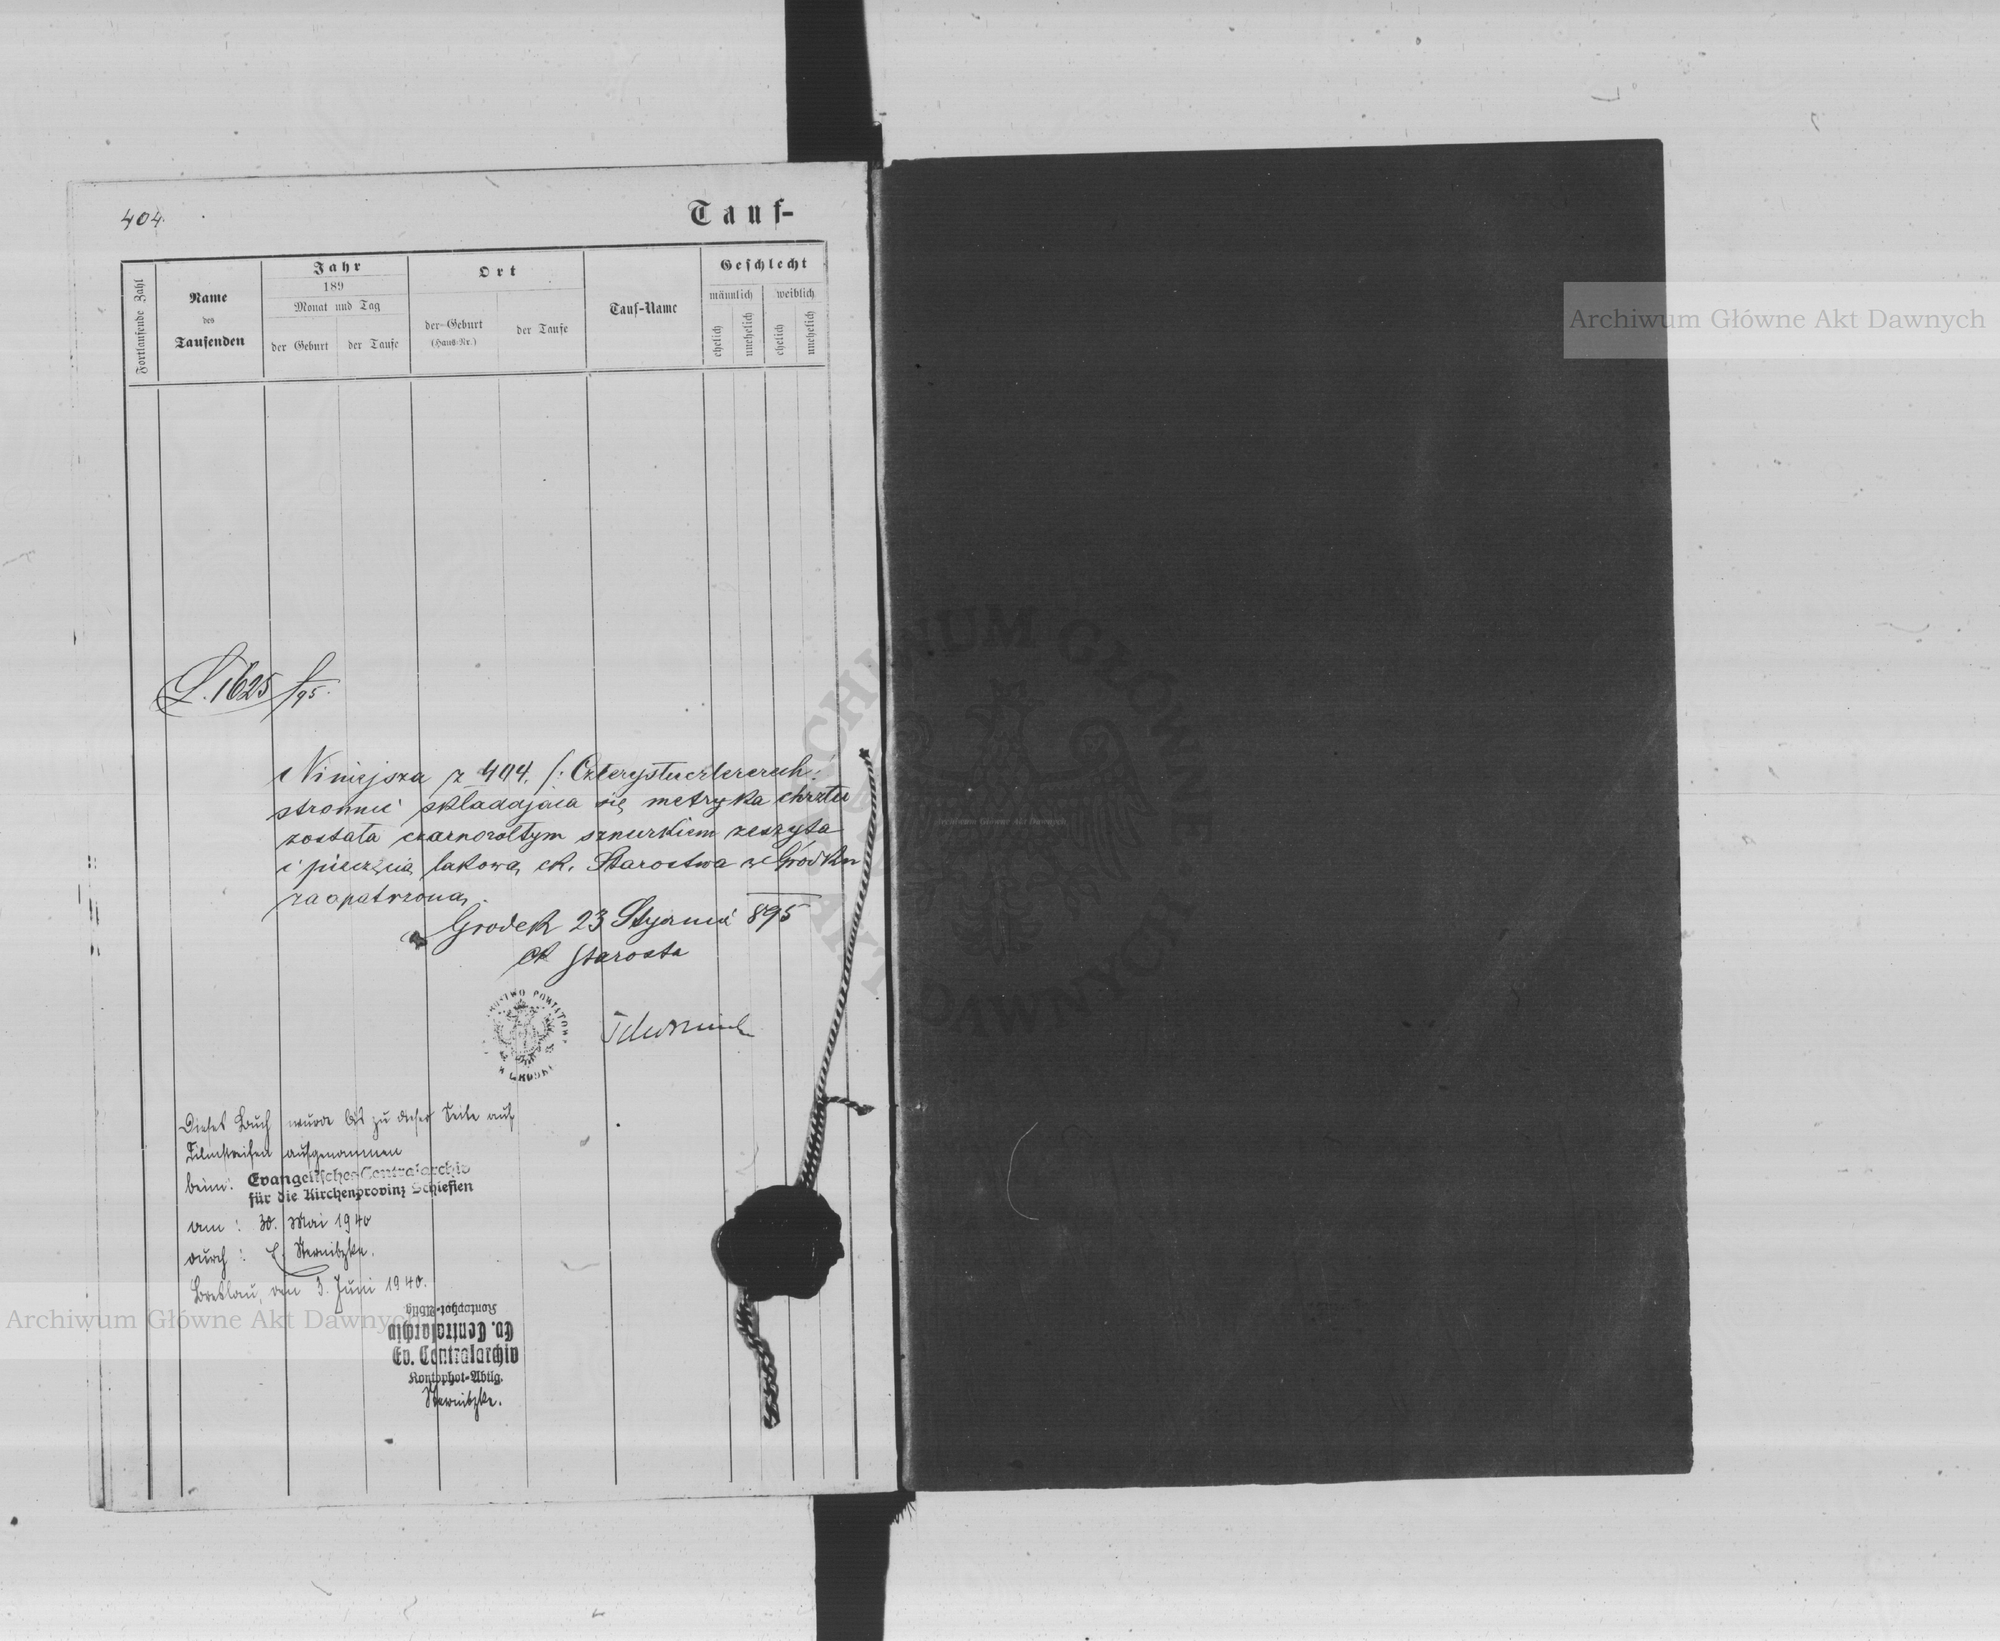 404.
Tauf-
Fortlaufende Zahl
Name
des
Taufenden
Jahr
189
Monat und Tag
der Geburt
der Taufe
Ort
der Geburt
(Haus-Nr.)
der Taufe
Tauf-Name
Geschlecht
männlich
weiblich
ehelich
unehelich
ehelich
unehelich
L. 1625/95.
Niniejsza z 404. /: Czterystuczterech :
stronnic składająca się metryka chrztu
została czarnożółtym sznurkiem zeszyta
i pieczęcią lakową ck. Starostwa w Gródku
zaopatrzona.
Gródek 23 Stycznia 895
ck Starosta
POWIATOW
W GRÓDKU
Dieses Buch wurde bis zu dieser Seite auf
Filmstreifen aufgenommen
beim: Evangelisches Centralarchiv
für die Kirchenprovinz Schlesien
am : 30. Mai 1940
durch : E. Sternitzke.
Breslau, den 3. Juni 1940.
Kontophot-Abtlg.
Ev. Centralarchiv
Ev. Centralarchiv
Kontophot-Abtlg.
Sternitzke.
Archiwum Główne Akt Dawnych
Archiwum Główne Akt Dawnych
ARCHIWUM GŁÓWNE AKT DAWNYCH
Archiwum Główne Akt Dawnych